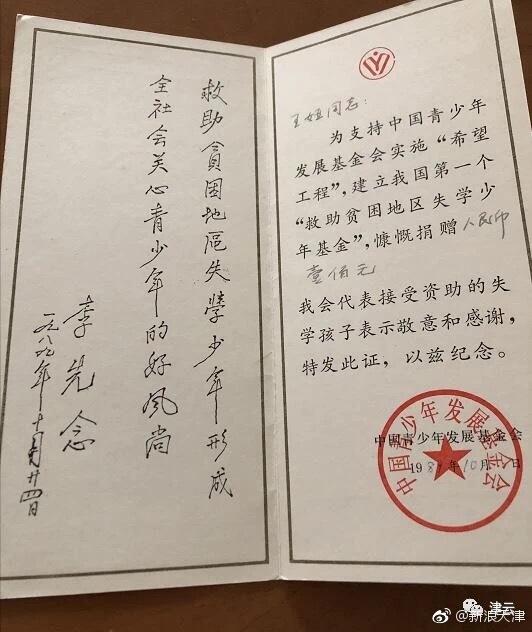 救助貧困地區失學少年形成
全社会关心青少年的好风尚
李先念
一九八九年十月廿四日
同志：
为支持中国青少年
发展基金会实施“希望
工程”，建立我国第一个
“救助贫困地区失学少
年基金”，慷慨捐赠人民币
壹佰元
我会代表接受资助的失
学孩子表示敬意和感谢，
特发此证，以兹纪念。
中国青少年发展基金会
中国青少年发展基金会
津云
@新浪天津